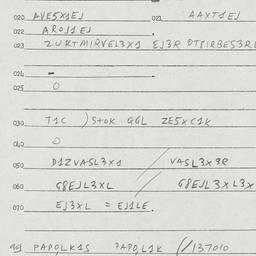 020 AVE5X1EJ 021 AAXT1EJ
022 AROJ1EJ
023 2UKTMIRVEL3X1 EJ3R DT8IRBE53RE
024 -
025 O
030 T1C )StOK QGL ZE5XC1K
040 O
050 D1ZVASL3X1 / VASL3X3R
060 G8EJL3XL / G8EJL3XL3X
070 EJ3XL = EJ1LE.
99J PAPOLK1S PAPOL1K (/137010